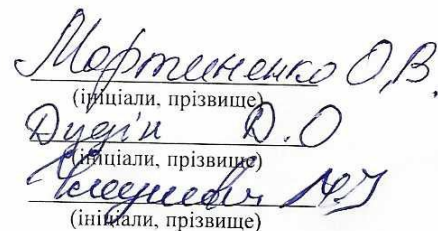 Мартиненко О.В.
(ініціали, прізвище)
Дудін Д.О
(ініціали, прізвище)
(ініціали, прізвище)